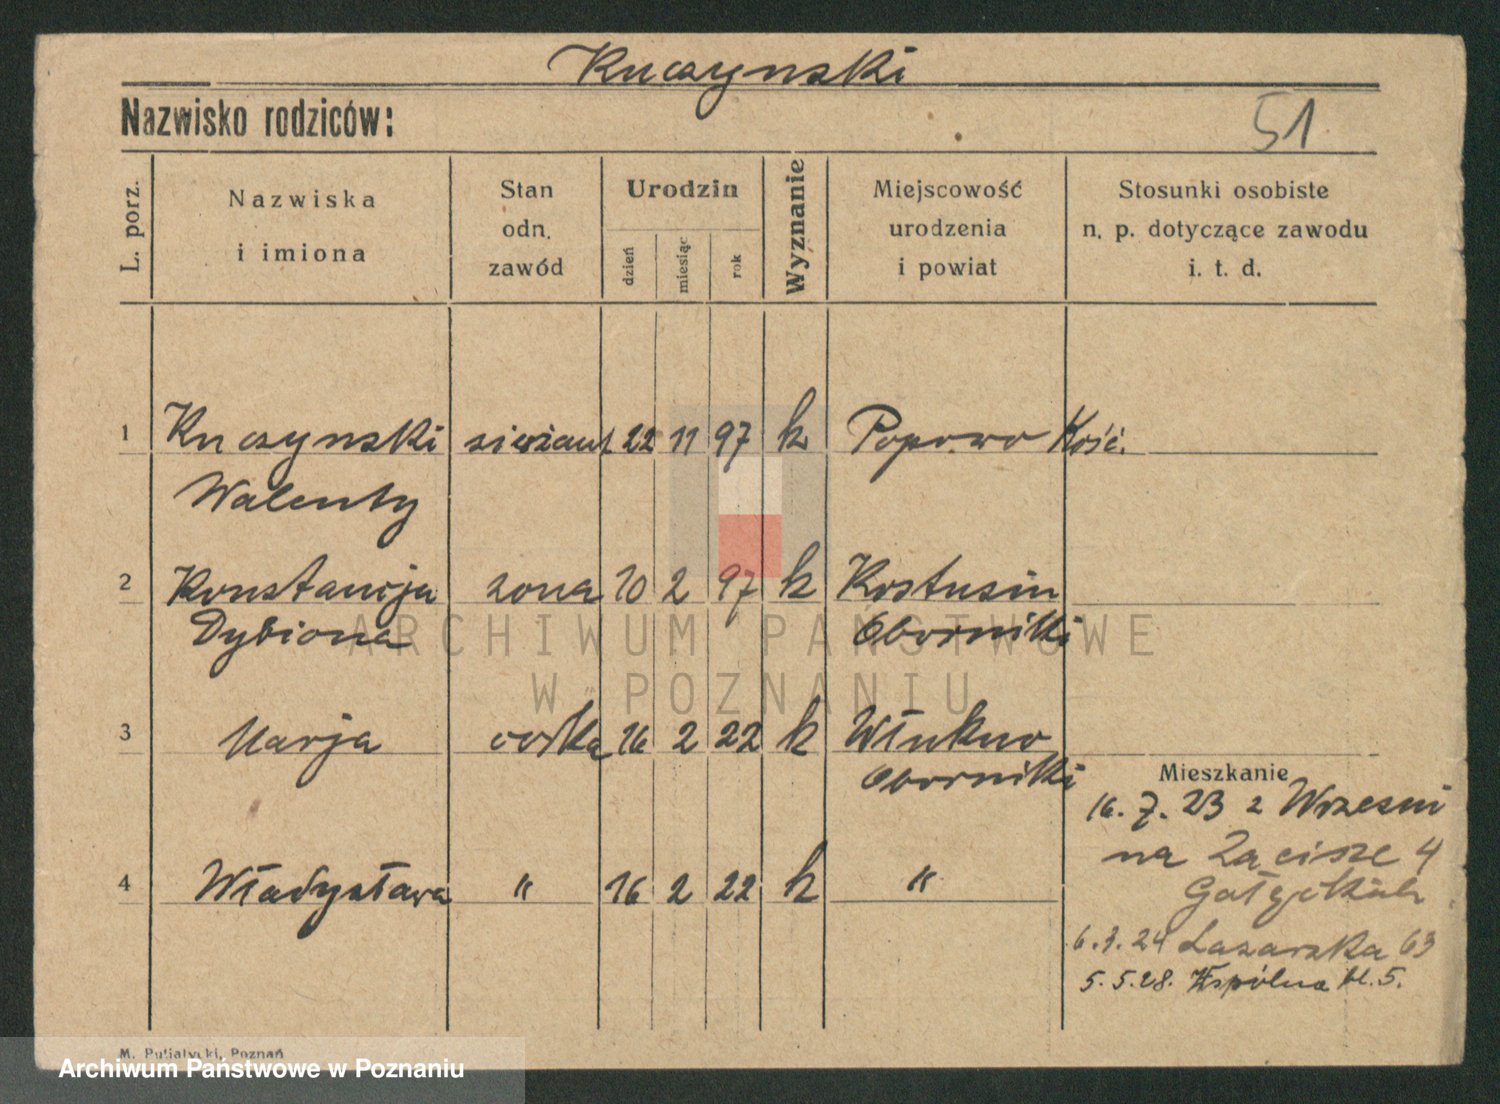 Kuczynski
Nazwisko rodziców:
51
L. porz.
Nazwiska
i imiona
Stan
odn.
zawód
Urodzin
dzień
miesiąc
rok
Wyznanie
Miejscowość
urodzenia
i powiat
Stosunki osobiste
n. p. dotyczące zawodu
i. t. d.
1 Kuczynski sierżant 22 11 97 k Popowo Kość.
Walenty
2 Konstancja zona 10 2 97 k
Dybiona Oborniki
3 Marja corka 16 2 22 k Włukno
Oborniki
4 Władysława " 16 2 22 k "
Mieszkanie
16. 7. 23 z Wrzesni
na Zacisze 4
6. 3. 24 Lazarska 63
5. 5. 28. Wspólna bl. 5.
ARCHIWUM PAŃSTWOWE
W POZNANIU
M. Putiatycki, Poznań
Archiwum Państwowe w Poznaniu